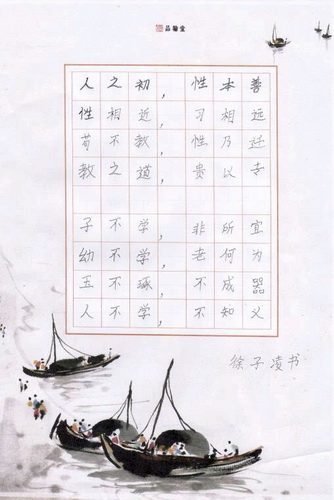 人之初，性本善
性相近，习相远
苟不教，性乃迁
教之道，贵以专
子不学，非所宜
幼不学，老何为
玉不琢，不成器
人不学，不知义
徐子凌书